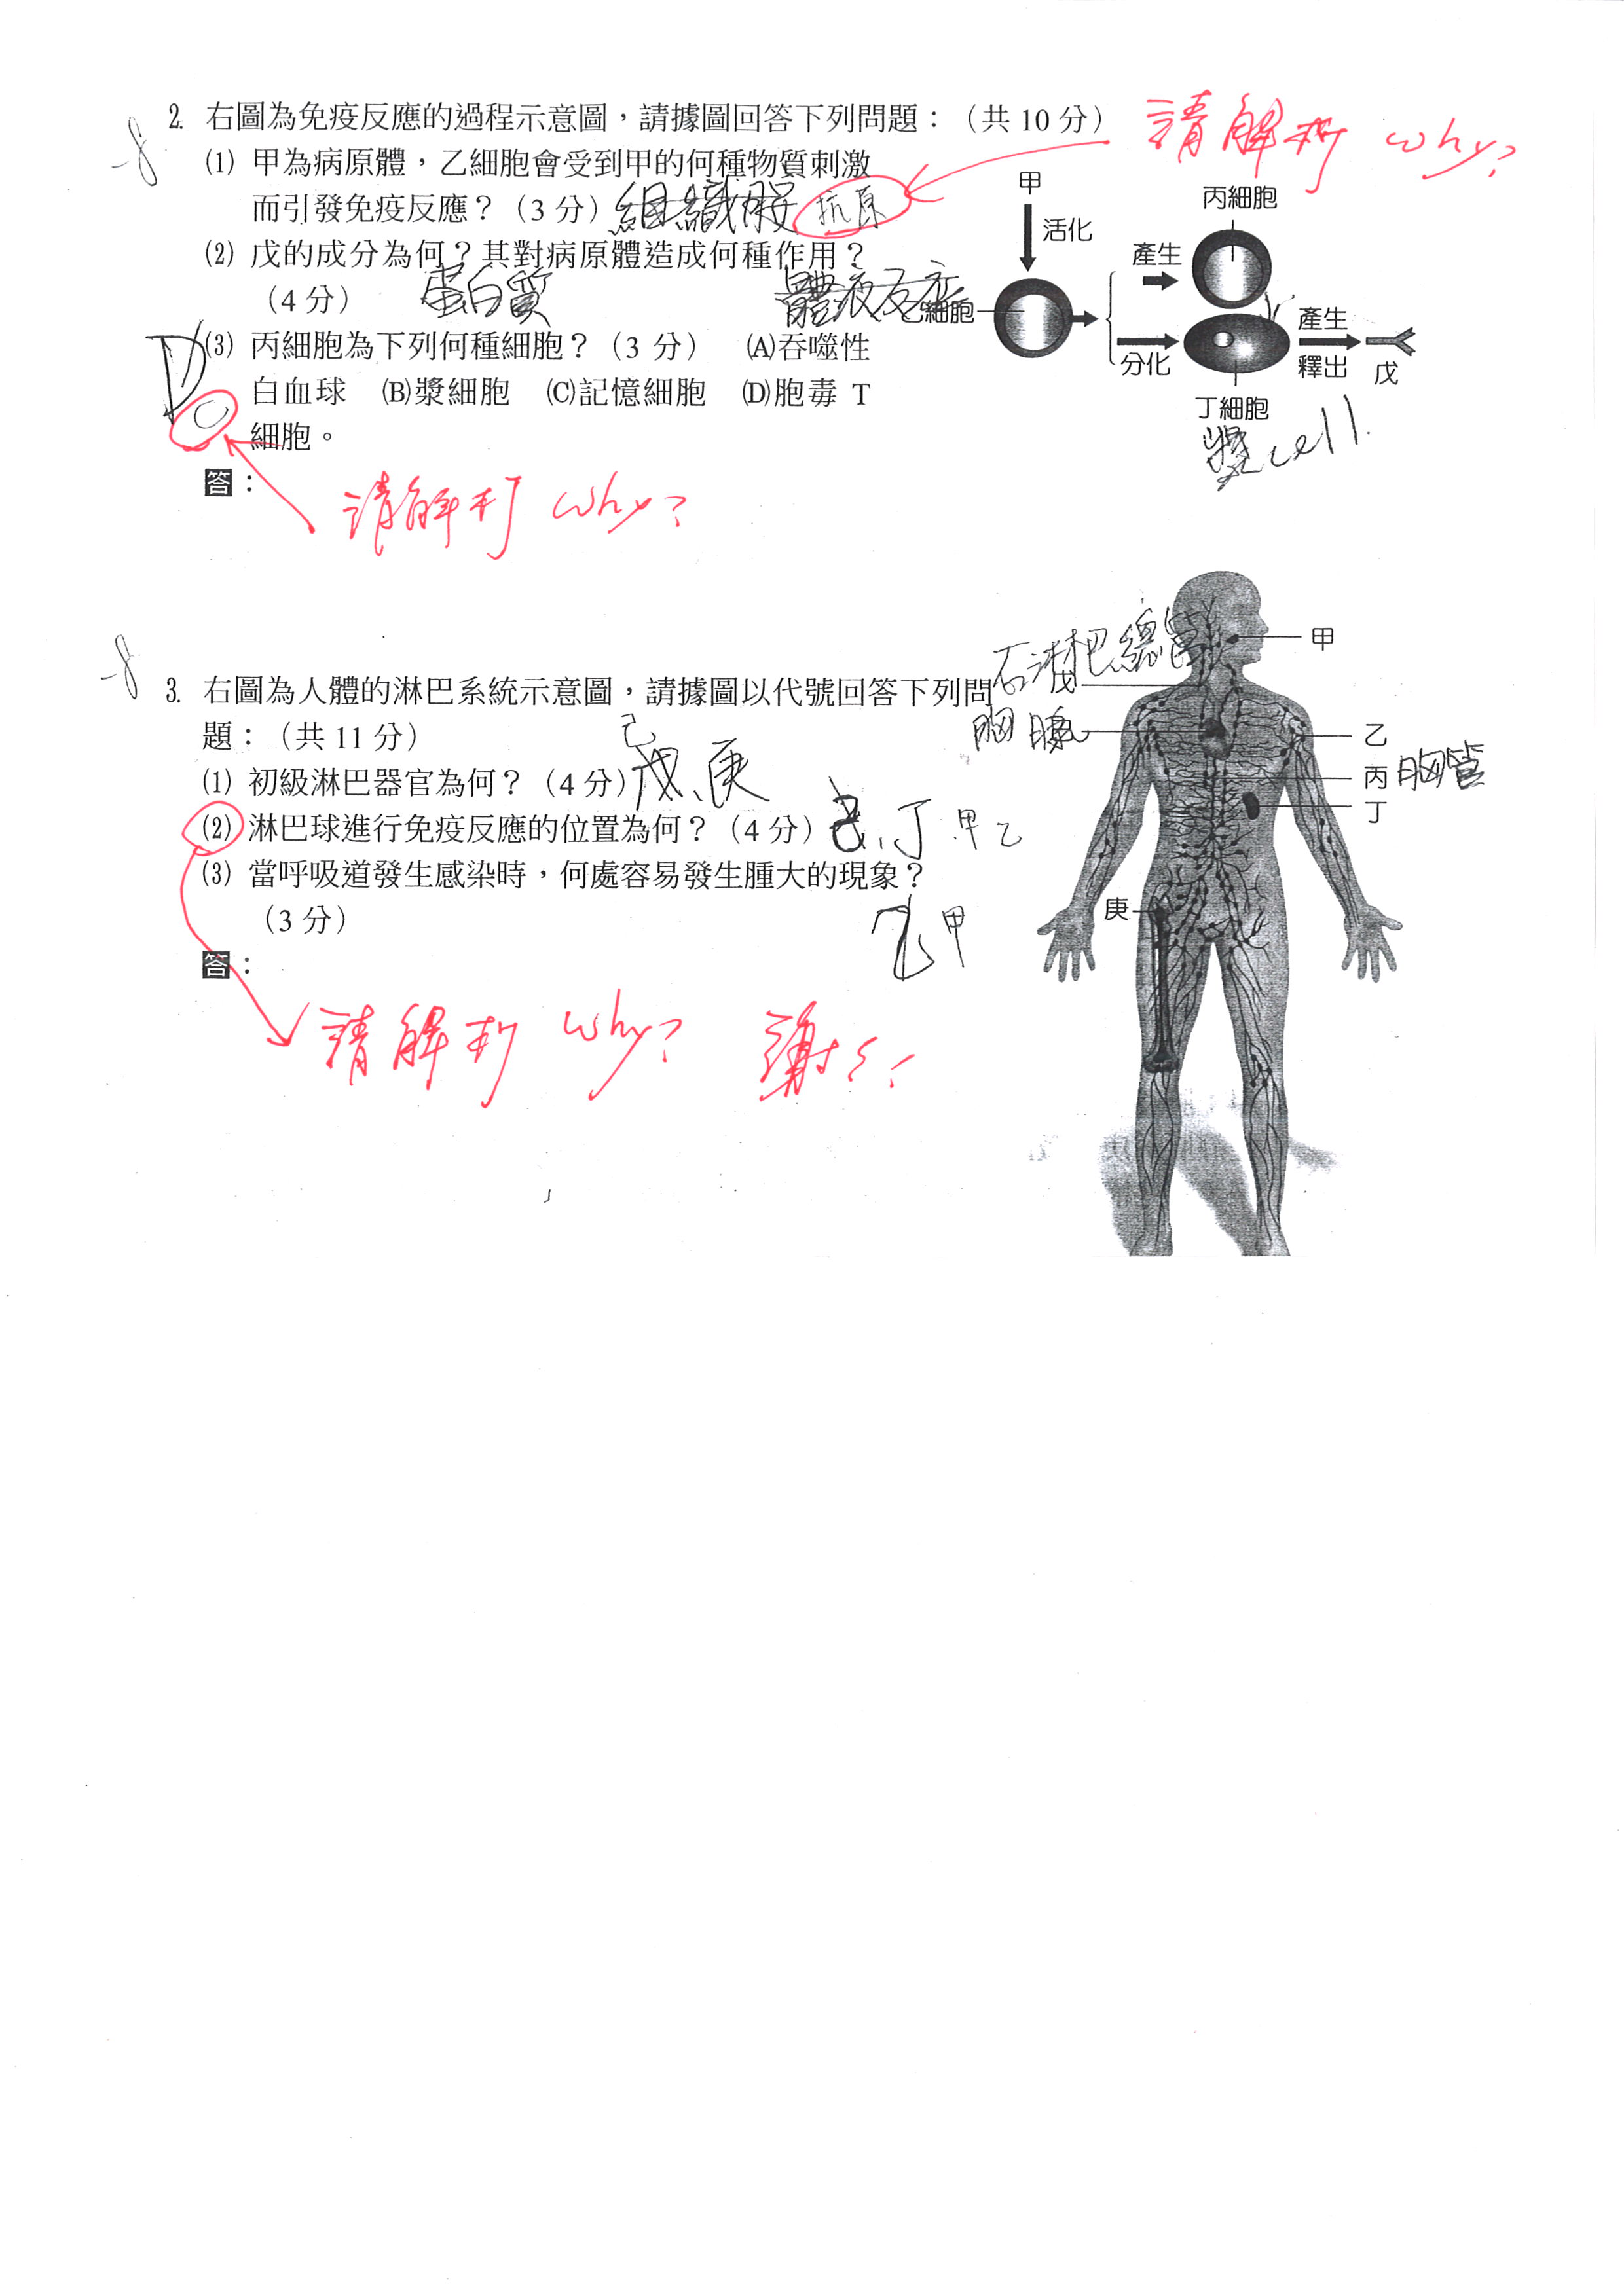 2. 右圖為免疫反應的過程示意圖，請據圖回答下列問題：（共 10 分）
請解析 why?
-8
(1) 甲為病原體，乙細胞會受到甲的何種物質刺激
而引發免疫反應？（3 分）組織胺 抗原
(2) 戊的成分為何？其對病原體造成何種作用？
（4 分） 蛋白質 體液反應
(3) 丙細胞為下列何種細胞？（3 分） (A)吞噬性
白血球 (B)漿細胞 (C)記憶細胞 (D)胞毒 T
細胞。
D
C
答：
請解析 why?
甲
活化
乙細胞
產生
丙細胞
分化
丁細胞
產生
釋出
戊
漿cell.
-8
3. 右圖為人體的淋巴系統示意圖，請據圖以代號回答下列問
題：（共 11 分）
(1) 初級淋巴器官為何？（4 分）戊、庚
己
(2) 淋巴球進行免疫反應的位置為何？（4 分）己、丁 甲 乙
(3) 當呼吸道發生感染時，何處容易發生腫大的現象？
（3 分） 乙 甲
答：
請解析 why? 謝謝
甲
右淋巴總管
戊
胸腺
乙
丙 胸管
丁
庚